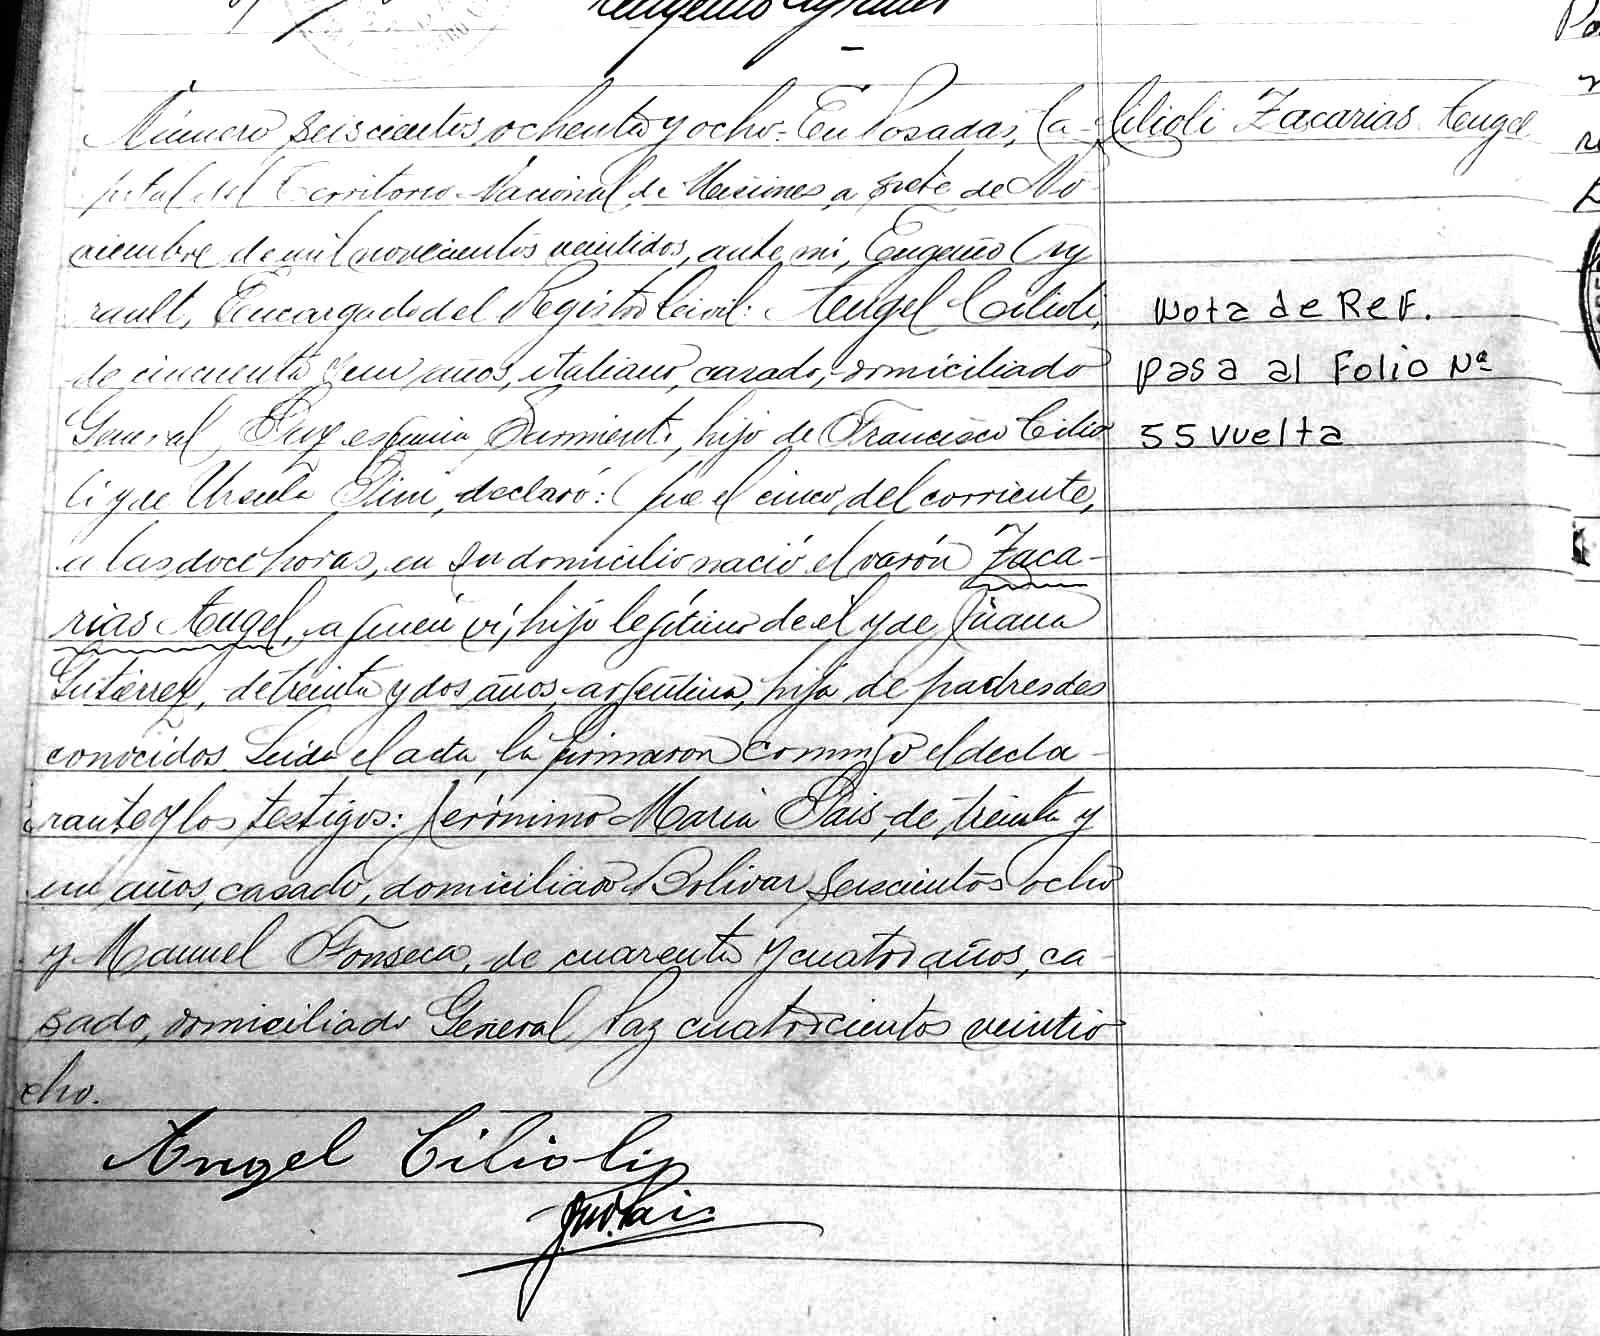 Número seiscientos ochenta y ocho. En Posadas, Ca-
pital del Territorio Nacional de Misiones, a siete de No-
viembre de mil novecientos veintidos, ante mi, Eugenio Ay
rault, Encargado del Registro Civil: Angel Cilioli,
de cincuenta y un años, italiano, casado, domiciliado
General Paz esquina Sarmiento, hijo de Francisco Cilio
li y de Ursula Pini, declaró: Que el cinco del corriente,
a las doce horas, en su domicilio nació el varón Zaca-
rias Angel, a quien vi, hijo legítimo de él y de Juana
Gutiérrez, de treinta y dos años, argentina, hija de padres des
conocidos. Leida el acta, la firmaron conmigo el decla-
rante y los testigos: Jerónimo Maria Pais, de treinta y
un años, casado, domiciliado Bolivar seiscientos ocho
y Manuel Fonseca, de cuarenta y cuatro años, ca-
sado, domiciliado General Paz cuatrocientos veintio
cho.
Angel Cilioli
J.M. Pais
Cilioli Zacarias Angel
Nota de Ref.
pasa al Folio Nº
55 vuelta